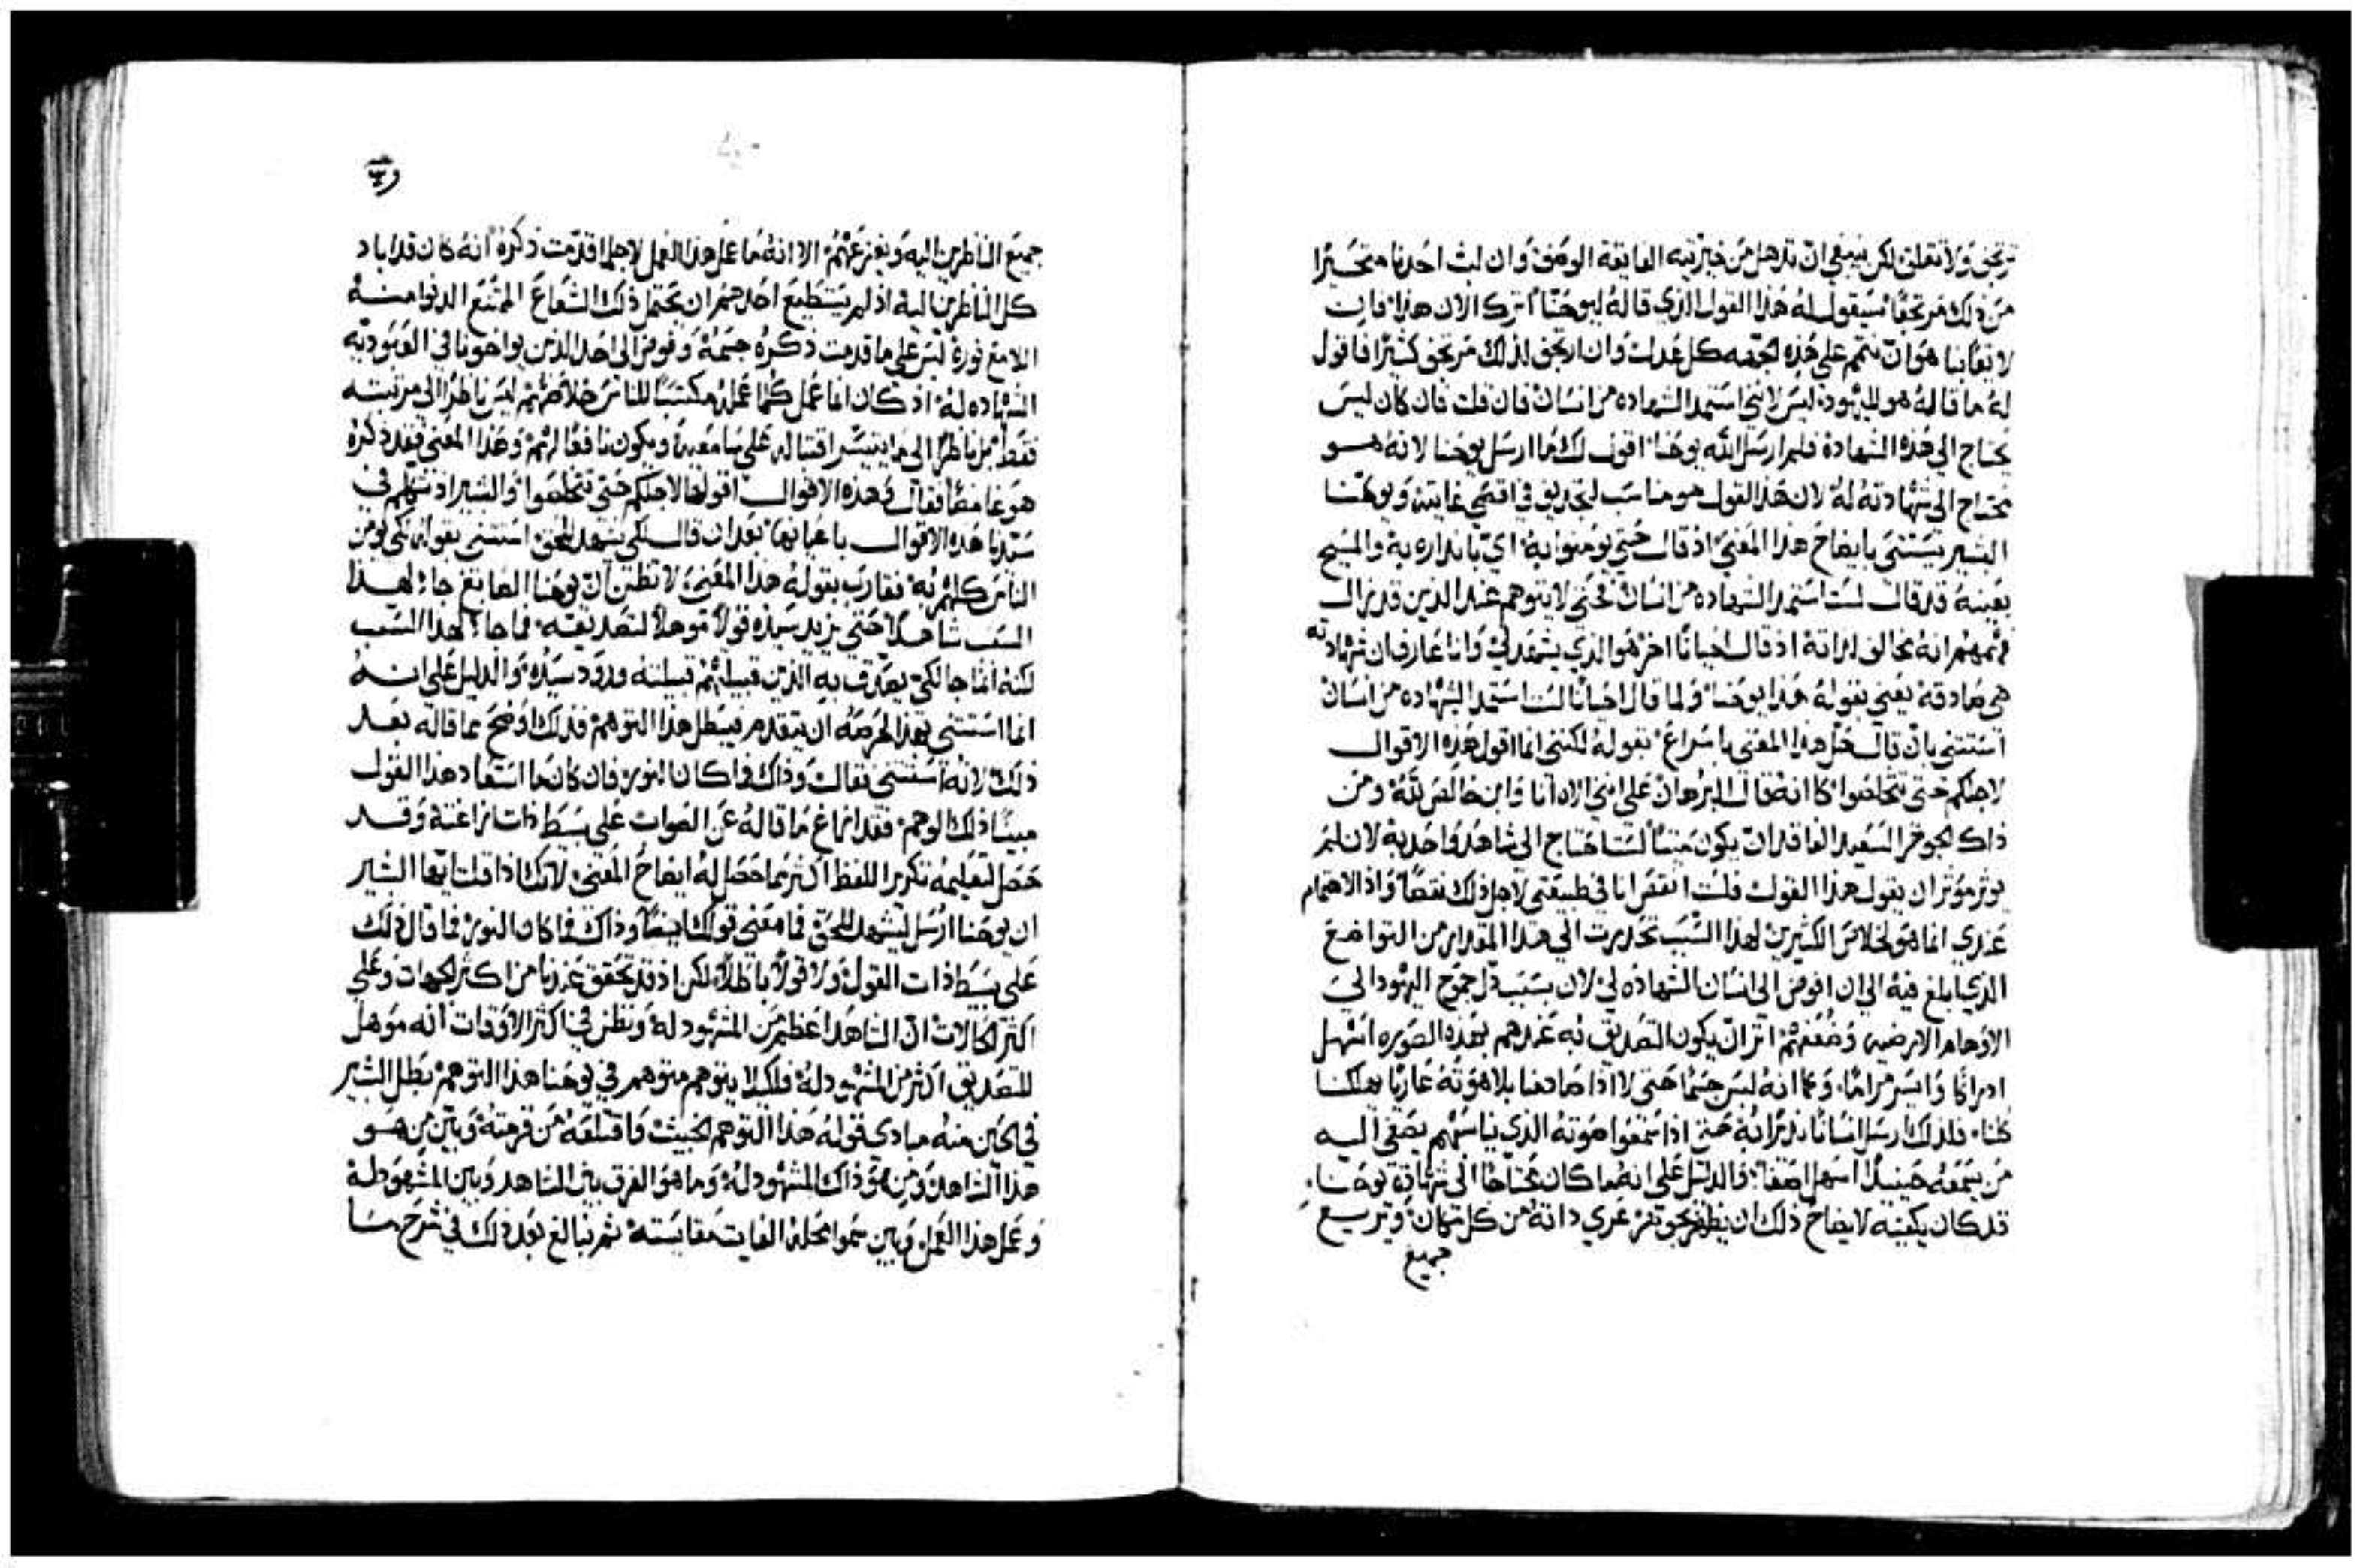 ترتجف ولا تقلق لكن ينبغي ان تذهل من خيريته الفايقة الوصف وان لبث احدنا متحيرًا
من ذلك مرتجفًا سيقول له هذا القول الذي قاله ليوحنا اترك الان هذا فان
لايقًا بنا هو ان نتم على هذه الجهه كل عدل وان ارتجف لذلك مرتجف كثيرًا فاقول
له ما قاله هو لليهود ليس لانني استمد الشهاده من انسان فان قلت فان كان ليس
يحتاج الي هذه الشهادة فلم ارسل الله يوحنا اقول لك ما ارسل يوحنا لانه هو
محتاج الي شهادته له لان هذا القول هو مناسب لتجديف في اقصي غايته ويوحنا
البشير يستثني بايضاح هذا المعنى اذ قال حتي يومنوا به اي بانذاره به والمسيح
بعينه قد قال لست استمد الشهاده من انسان فحتي لا يتوهم عند الذين قد زال
فهمهم انه يخالف لذاته اذ قال احيانًا اخر هو الذي يشهد لي وانا عارف ان شهادته
هي صادقة يعني بقوله هذا يوحنا ولما قال احيانًا لست استمد الشهاده من انسان
استثني بان قال حل هذا المعنى باسراع بقوله لكنني انما اقول هذه الاقوال
لاجلكم حتي تخلصوا كانه قال البرهان على انني الاه انا وابن خالص لله ومن
ذاك الجوهر السعيد الفاقد ان يكون ميتًا لست احتاج الي شاهد واحد به لان لم
يوثر موثر ان يقول هذا القول فلست انقص انا في طبيعتي لاجل ذلك نقصًا واذ الاهتمام
عندي انما هو لخلاص الكثيرين لهذا السبب تحدرت الي هذا المقدار من التواضع
الذي ابلغ فيه الي ان افوض الي انسان الشهاده لي لان بسبب ذل جموح اليهود الي
الاوهام الارضيه وضعفهم اثر ان يكون التصديق به عندهم بهذه الصوره اسهل
ادراكًا وايسر مرامًا وكما انه لبس جسمًا حتى لا اذا صادفنا بلاهوته عاريًا يهلكنا
كلنا فلذلك ارسل انسانًا نذيرًا به حتى اذا سمعوا صوته الذي يناسبهم يصغي اليه
من يسمعه حينيذ اسهل اصغاءً والدليل على انه ما كان محتاجًا الي شهادة يوحنا
قد كان يكفيه لايضاح ذلك ان يظهر بجوهره عري ذاته من كل كتمان ويريع
جميع
جميع الناظرين اليه ويفزعهم الا انه ما عمل هذا العمل لاجل ما قدمت ذكره انه كان قد اباد
كل الناظرين اليه اذ لم يستطيع احد هم ان يحتمل ذلك الشعاع الممتنع الدنوا منه
اللامع نوره لبس على ما قدمت ذكره جسمًا وفوض الى احد الذين يواخونا في العبوديه
الشهاده له اذ كان انما عمل كلما عمله مكتسبًا للناس خلاصهم ليس ناظرًا الي مرتبته
فقط بل ناظرًا الي ما يتيسر اقتباله على سامعيه ويكون نافعًا لهم وهذا المعني فقد ذكره
هو غامضًا فقال هذه الاقوال اقولها لاجلكم حتى تخلصوا والبشير اذ تكلم في
سيدنا هذه الاقوال باعيانها بعد ان قال لكي يشهد للحق استثني بقوله لكي يومن
الناس كلهم به فقارب بقوله هذا المعنى لا تظن ان يوحنا الصابغ جاء لهذا
السبب شاهدًا حتى يزيد سيده قولاً موهلاً لتصديقه فما جاء لهذا السبب
لكنه انما جا لكي يصدق به الذين قبيلتهم قبيلته ورود سيده والدليل على انه
انما استثني بهذا لحرصه ان يتقدم فيبطل هذا التوهم فذلك اوضح مما قاله بعد
ذلك لانه استثني فقال وذاك فما كان النور فان كان ما استعاد هذا القول
مبينًا ذلك الوهم فقد ازاغ ما قاله عن الصواب على بسط ذات زاغته وقد
حصل لتعليمه تكرير اللفظ اكثر مما حصل له ايضاح المعنى لانك اذا قلت ايها البشير
ان يوحنا ارسل ليشهد للحق فما معنى قولك ايضًا وذاك فما كان النور فما قال ذلك
على بسيط ذات القول ولا قولاً باطلاً لكن اذ قد تحقق عندنا من اكثر الجهات وعلي
اكثر الحالات ان الشاهد اعظم من المشهود له ونظن في اكثر الاوقات انه موهل
للتصديق اكثر من المشهود له فلكيلا يتوهم متوهم في يوحنا هذا التوهم بطل البشير
في الحين منه مبادي قوله هذا التوهم الخبيث واقتلعه من قرمته وبين من هو
هذا الشاهد ومن هو ذاك المشهود له وما هو الفرق بين الشاهد وبين المشهود له
وعمل هذا العمل وبين سموا محله الفايت مقايسته ثم نبالغ بعد ذلك في شرح ما